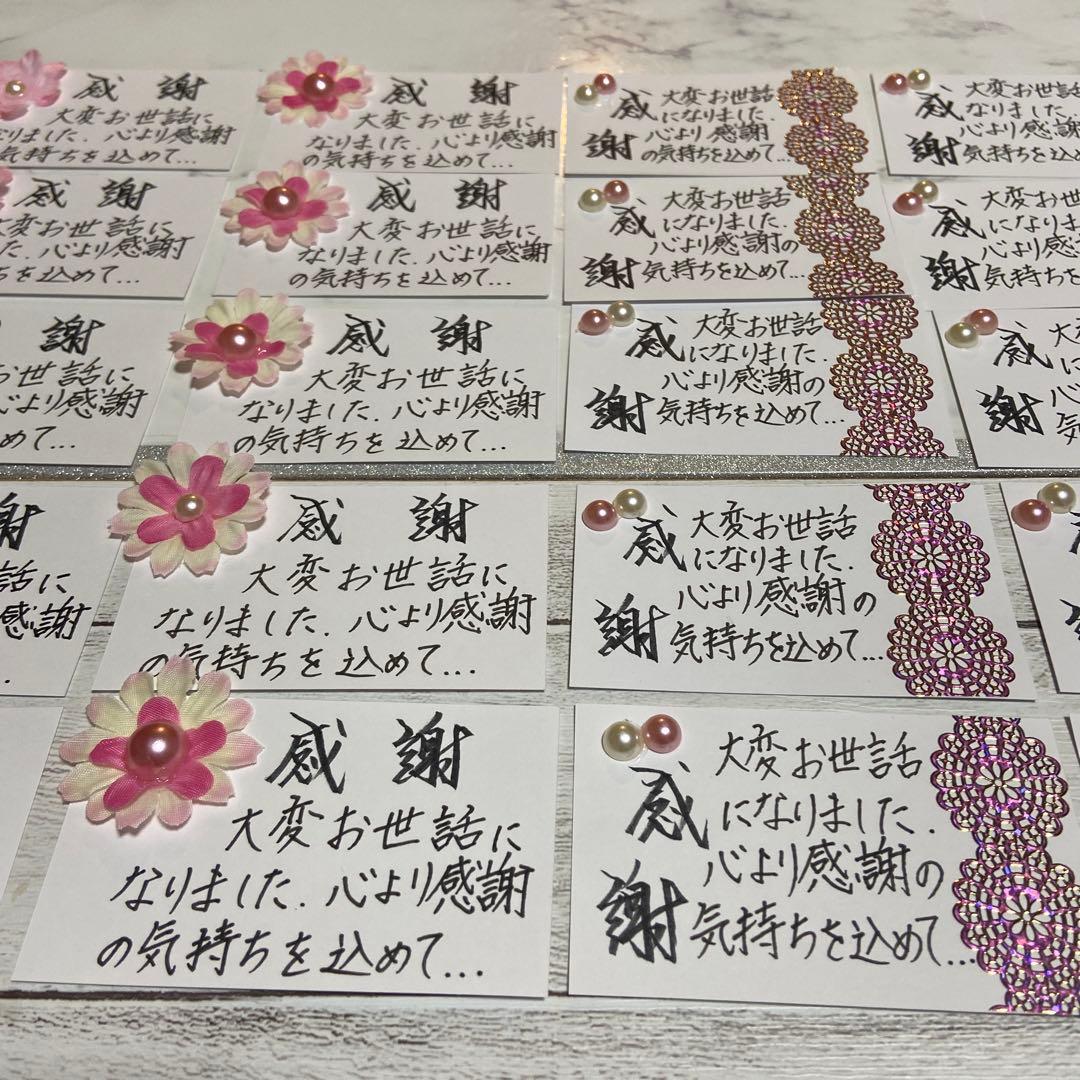 感 謝
大変お世話に
なりました. 心より感謝
の気持ちを込めて...
感 謝
大変お世話に
なりました. 心より感謝
の気持ちを込めて...
感謝
大変お世話
になりました.
心より感謝
の気持ちを込めて...
感謝
大変お世話に
なりました.
心より感謝
の気持ちを込めて...
感 謝
大変お世話に
た. 心より感謝
ちを込めて...
感 謝
大変お世話に
なりました. 心より感謝
の気持ちを込めて...
感謝
大変お世話
になりました.
心より感謝の
気持ちを込めて...
感謝
大変お世話
になりま
心より感謝
気持ちを込めて
謝
お世話に
心より感謝
めて...
感 謝
大変お世話に
なりました. 心より感謝
の気持ちを込めて...
感謝
大変お世話
になりました.
心より感謝の
気持ちを込めて...
感謝
大変
に
心
気
謝
話に
感謝
感 謝
大変お世話に
なりました. 心より感謝
の気持ちを込めて...
感謝
大変お世話
になりました.
心より感謝の
気持ちを込めて...
感 謝
大変お世話に
なりました. 心より感謝
の気持ちを込めて...
感謝
大変お世話
になりました.
心より感謝の
気持ちを込めて...